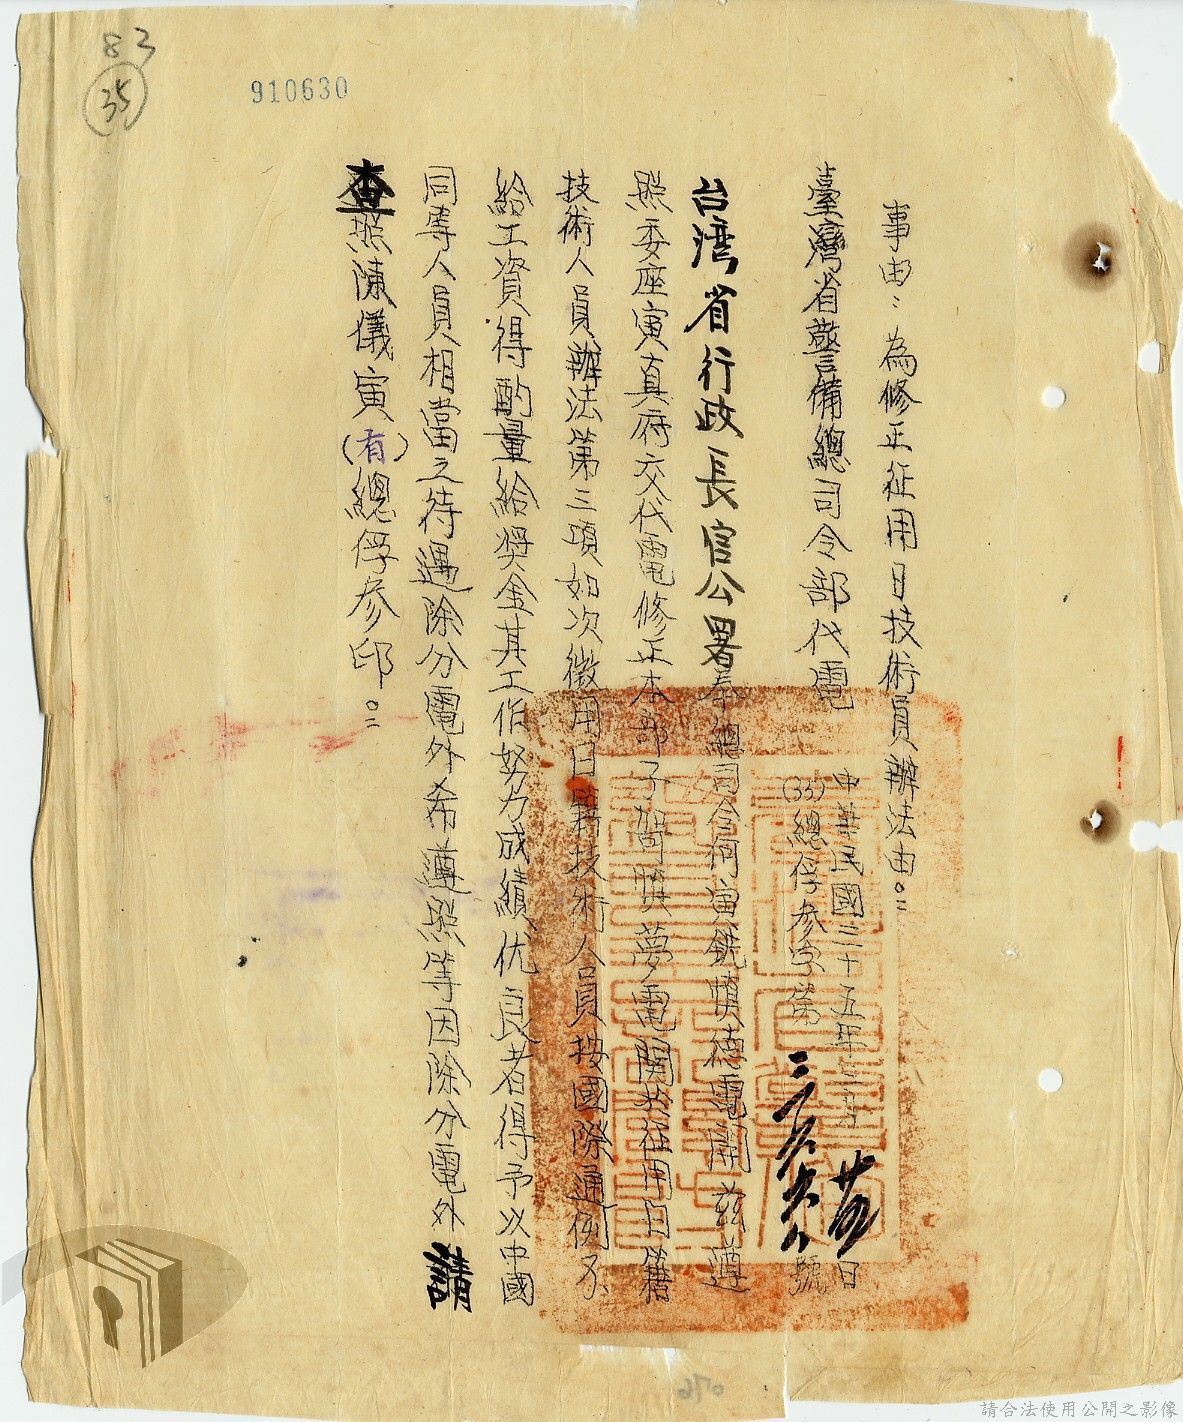 83
35
910630
事由：為修正征用日技術員辦法由。
臺灣省警備總司令部代電
中華民國三十五年三月 日
(35)總俘參字第 號
台湾省行政長官公署奉總司令何寅銑 德電開茲遵
照委座寅真府交代電修正本部子 電関於征用日籍
技術人員辦法第三項如次徵用日籍技術人員按國際通例不
給工資得酌量給奬金其工作努力成績优良者得予以中國
同等人員相當之待遇除分電外希遵照等因除分電外請
查照陳儀寅(有)總俘参印。
請合法使用公開之影像